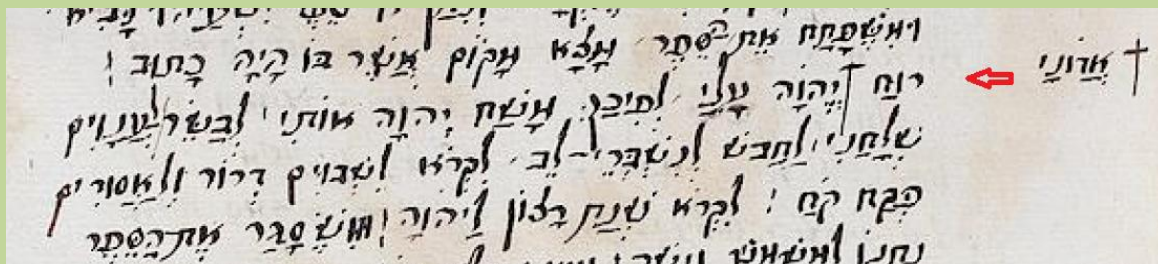 ספר ישעיהו הנביא
וּמִשֶׁפָּתַח אֶת־הַסֵּפֶר מָצָא מָקוֹם אֲשֶׁר בּוֹ הָיָה כָתוּב :
† אֲדוֹנָי
רוּחַ † יֱהוָֹה עָלַי לְפִיכַךְ מָשַׁח יְהוָה אוֹתִי לְבַשֵׂר לַעֲנָוִים
שְׁלָחַנִי לַחֲבֹשׁ לְנִשְׁבְּרֵי־לֵב לִקְרֹא לִשְׁבוּיִם דְּרוֹר וְלַאֲסוּרִים
פְּקַח קֹחַ : לִקְרֹא שְׁנַת רָצוֹן לַיהוָה : וּמִשֶׁסָגַר אֶת־הַסֵּפֶר
נתנו למשמש וישב